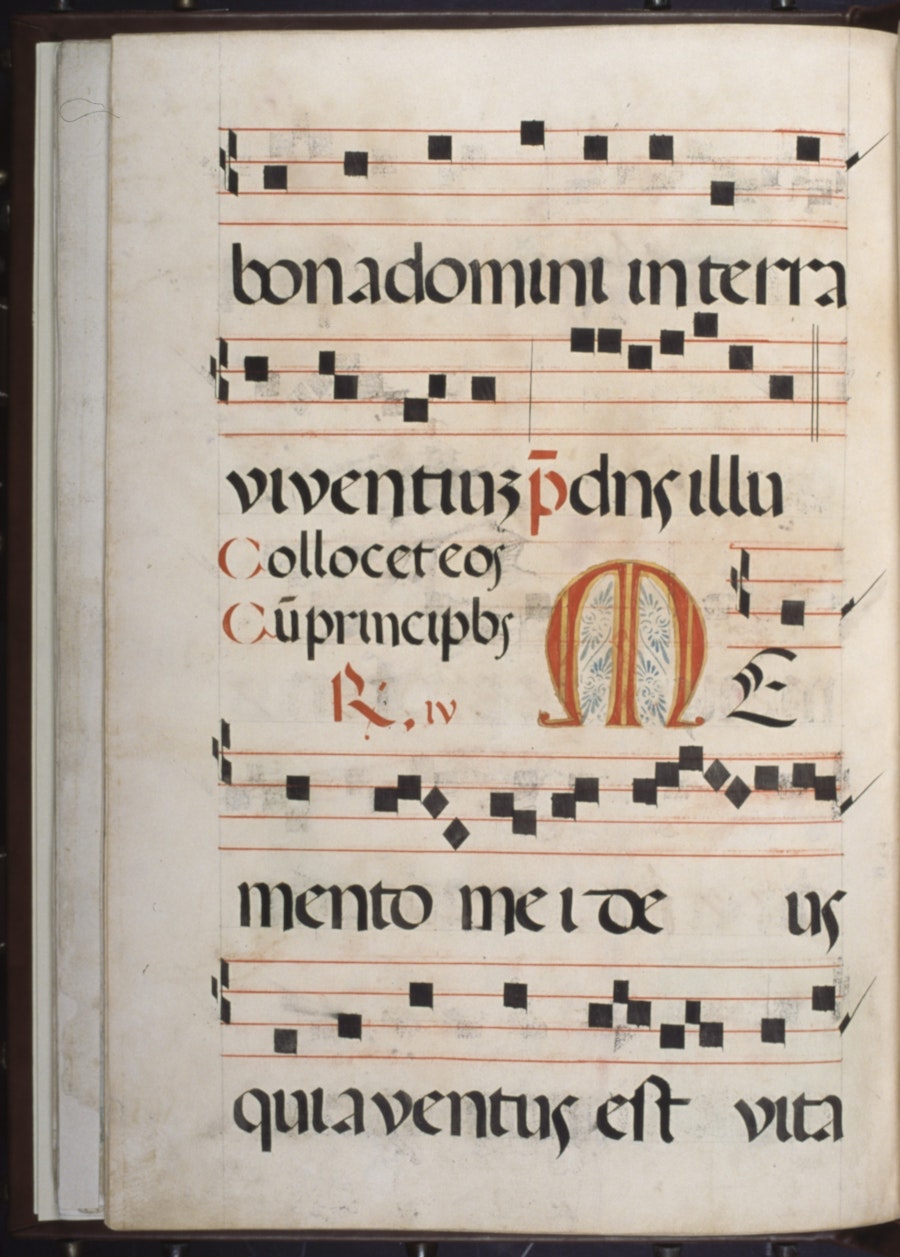 bona domini in terra
viventiuʒ p̄ dn̄s illu
Collocet eos
Cū principbs
R, IV
ME
mento mei de us
quia ventus est vita